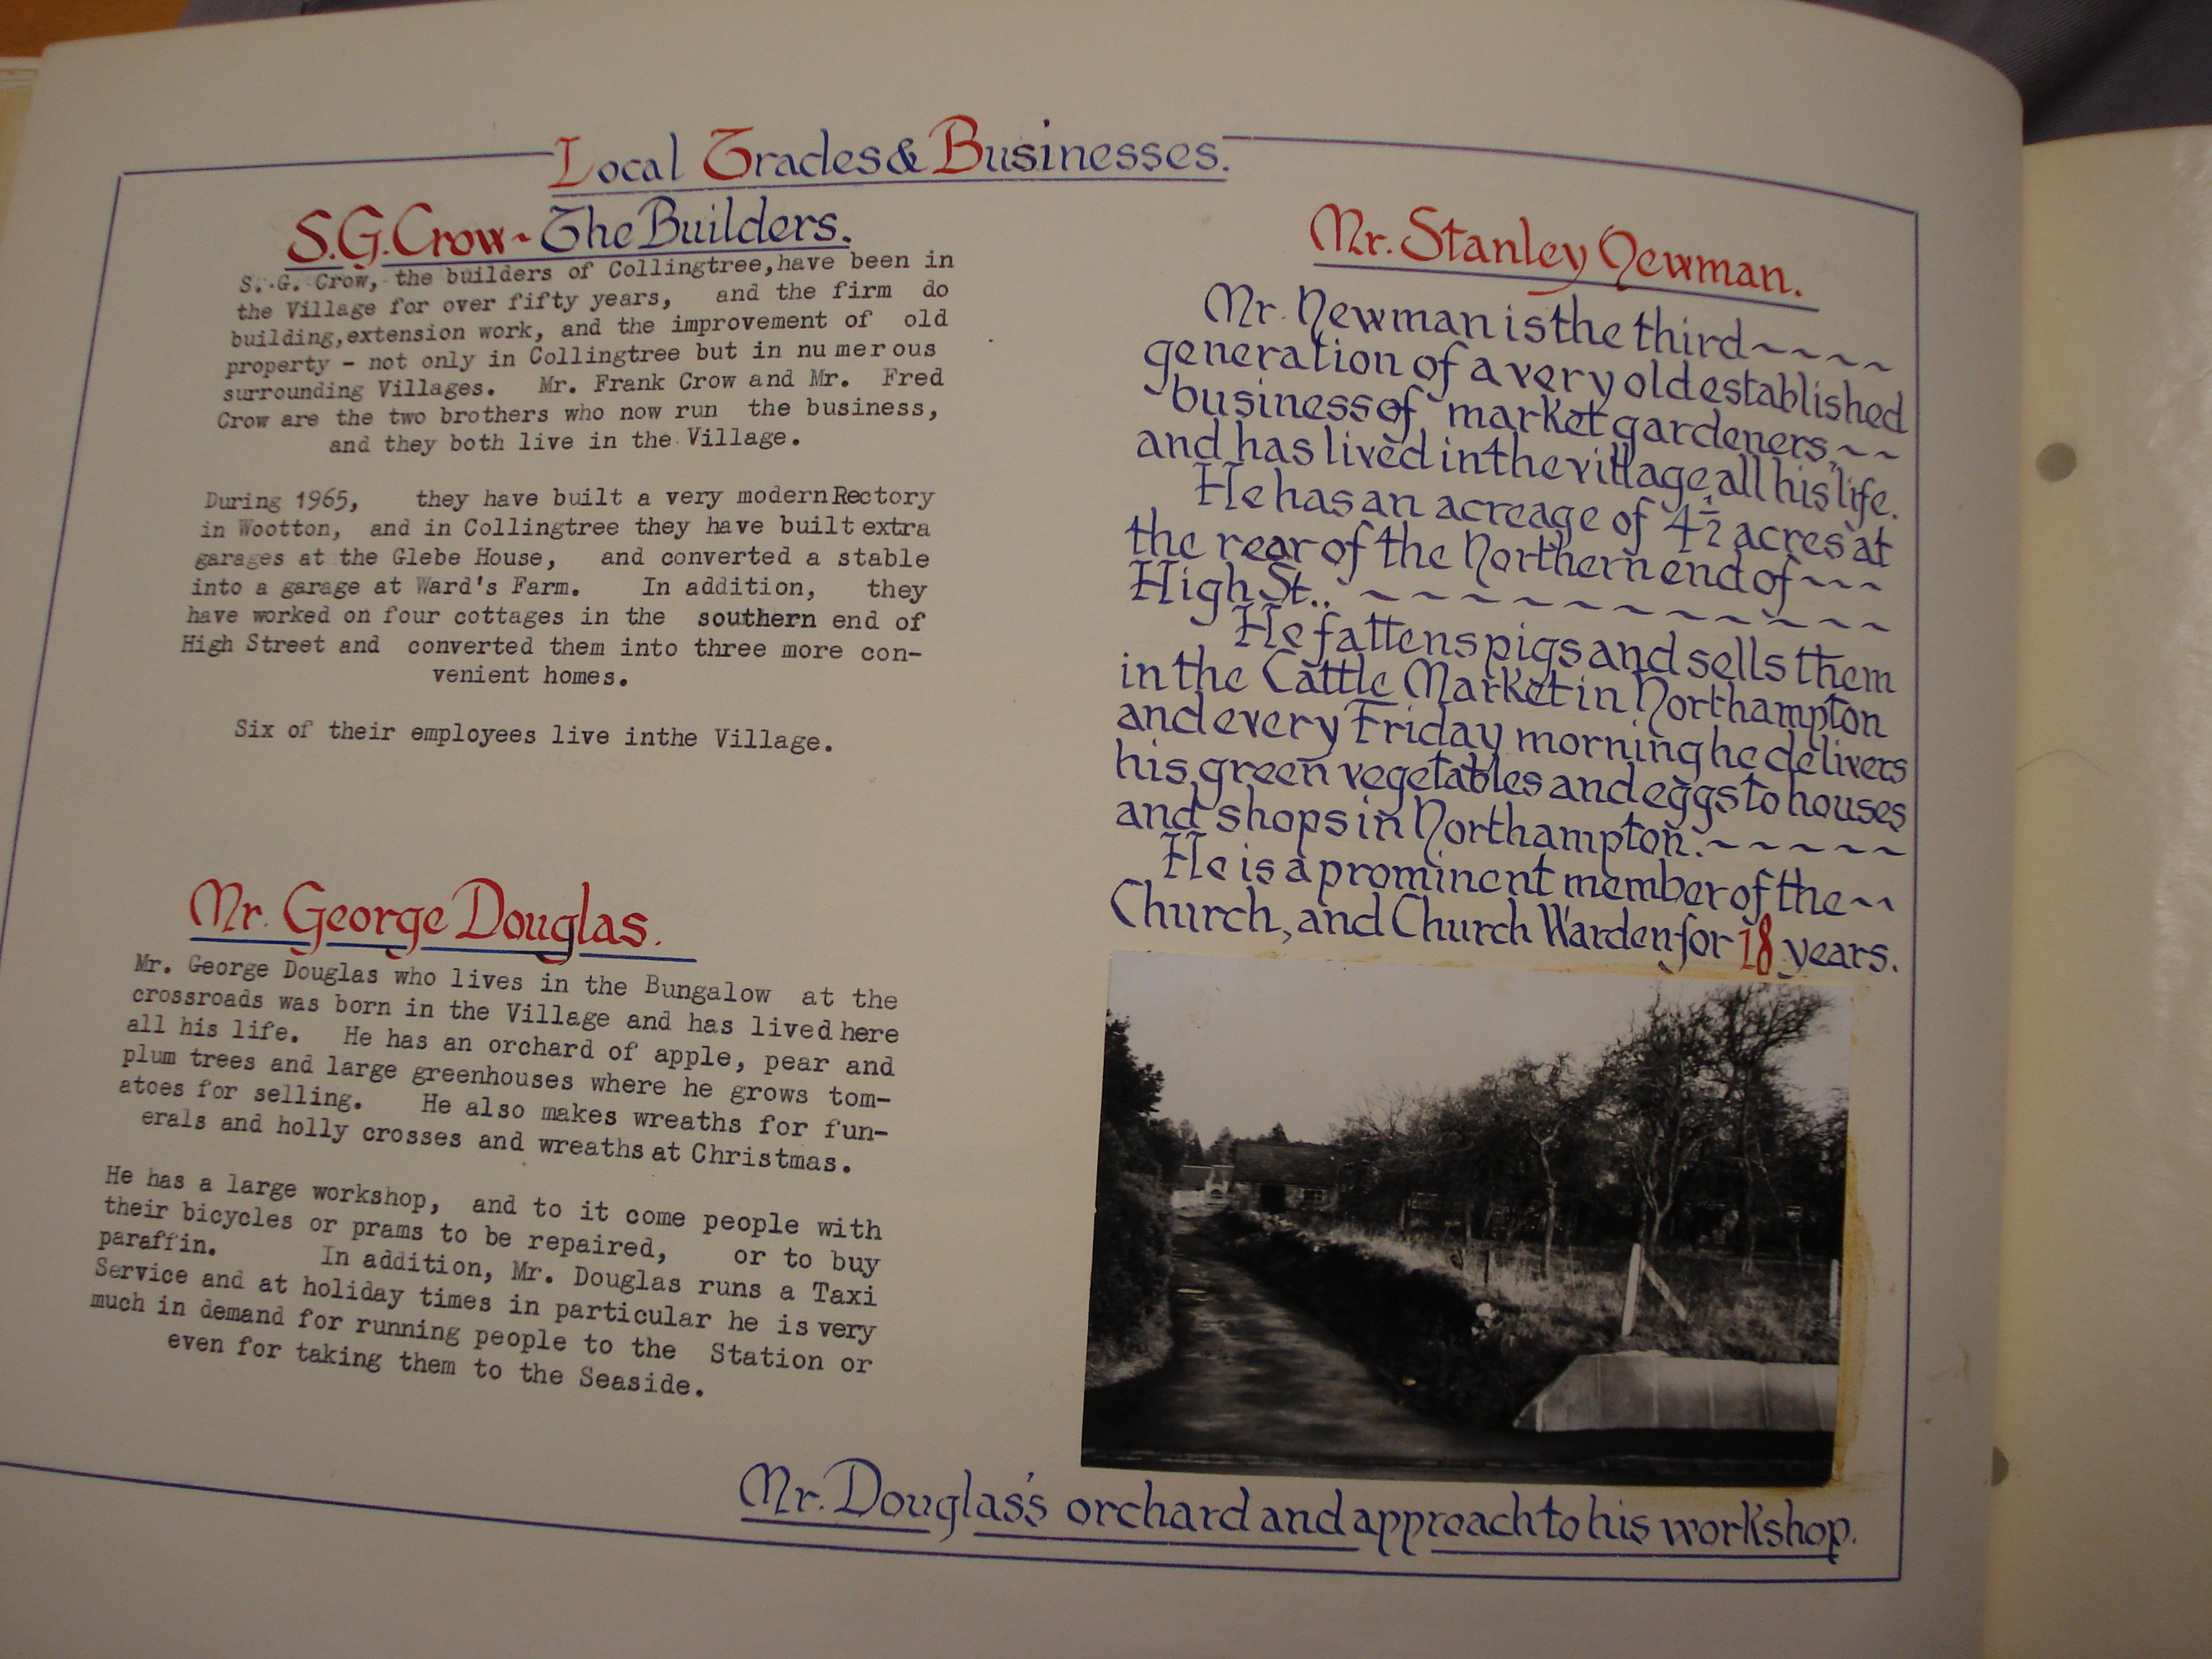 Local Trades & Businesses.
S.G. Crow ~ The Builders.
S..G. Crow, the builders of Collingtree, have been in
the Village for over fifty years, and the firm do
building, extension work, and the improvement of old
property - not only in Collingtree but in numerous
surrounding Villages. Mr. Frank Crow and Mr. Fred
Crow are the two brothers who now run the business,
and they both live in the Village.
During 1965, they have built a very modern Rectory
in Wootton, and in Collingtree they have built extra
garages at the Glebe House, and converted a stable
into a garage at Ward's Farm. In addition, they
have worked on four cottages in the southern end of
High Street and converted them into three more con-
venient homes.
Six of their employees live inthe Village.
Mr. George Douglas.
Mr. George Douglas who lives in the Bungalow at the
crossroads was born in the Village and has lived here
all his life. He has an orchard of apple, pear and
plum trees and large greenhouses where he grows tom-
atoes for selling. He also makes wreaths for fun-
erals and holly crosses and wreaths at Christmas.
He has a large workshop, and to it come people with
their bicycles or prams to be repaired, or to buy
paraffin. In addition, Mr. Douglas runs a Taxi
Service and at holiday times in particular he is very
much in demand for running people to the Station or
even for taking them to the Seaside.
Mr. Stanley Newman.
Mr. Newman is the third ~~~~
generation of a very old established
business of market gardeners, ~~
and has lived in the village all his life.
He has an acreage of 4½ acres at
the rear of the Northern end of ~~~
High St.. ~~~~~~~~~~
He fattens pigs and sells them
in the Cattle Market in Northampton
and every Friday morning he delivers
his green vegetables and eggs to houses
and shops in Northampton. ~~~~~
He is a prominent member of the ~~
Church, and Church Warden for 18 years.
Mr. Douglas's orchard and approach to his workshop.